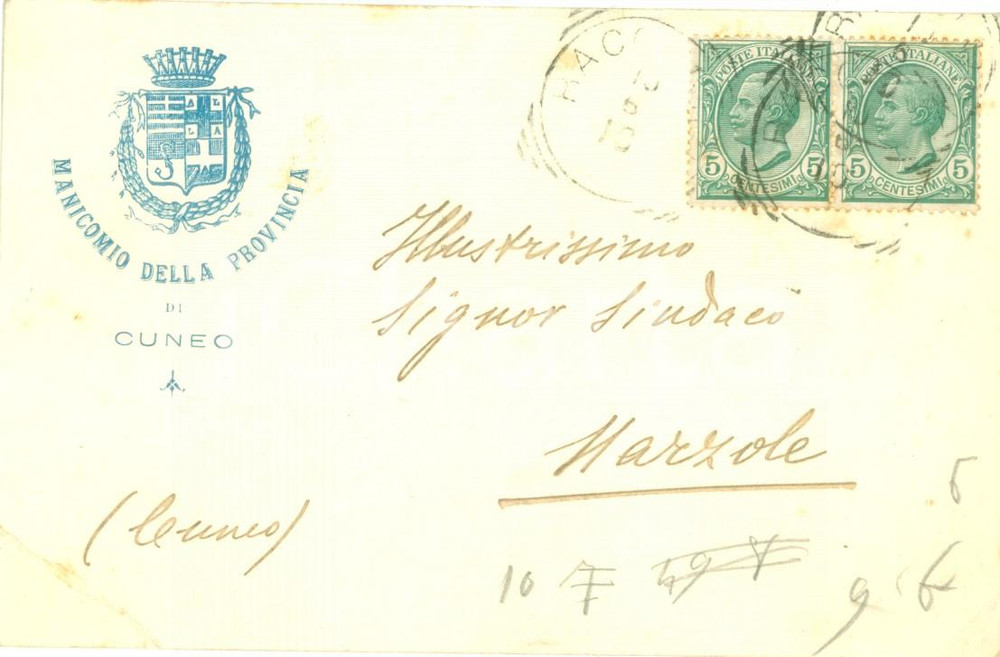 MANICOMIO DELLA PROVINCIA
DI
CUNEO
RACC
POSTE ITALIANE
5 5
CENTESIMI
POSTE ITALIANE
5 5
CENTESIMI
Illustrissimo
Signor Sindaco
Narzole
(Cuneo)
10 7